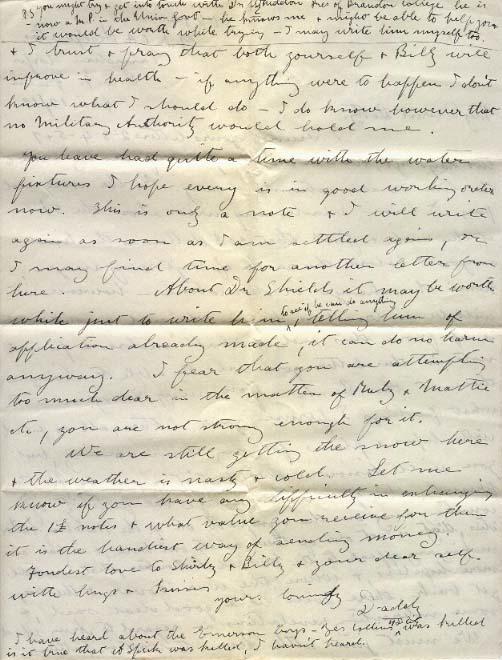 PS you might try & get into touch with Dr Whidden Pres of Brandon College he is
now a M.P. in the Union Govt - he knows me & might be able to help you
it would be worth while trying - I may write him myself too.
& I trust & pray that both yourself & Billy will
improve in health - if anything were to happen I don't
know what I should do - I do know however that
no Military Authority would hold me.
You have had quite a time with the water
fixtures I hope every is in good working order
now. This is only a note & I will write
again as soon as I am settled again, or
I may find time for another letter from
here. About Dr Shields it may be worth
to see if he can do anything
while just to write him, telling him of
application already made, it can do no harm
anyway. I fear that you are attempting
too much dear in the matter of Ruby & Mattie
etc, you are not strong enough for it.
We are still getting the snow here
& the weather is nasty & cold. Let me
know if you have any difficulty in exchanging
the 1£ notes & what value you receive for them
it is the handiest way of sending money.
Fondest love to Shirley & Billy & your dear self.
with hugs & kisses
your loving
Daddy
I have heard about the Emerson boys - Yes Collins was killed
is it true that A Speck was killed, I haven't heard.